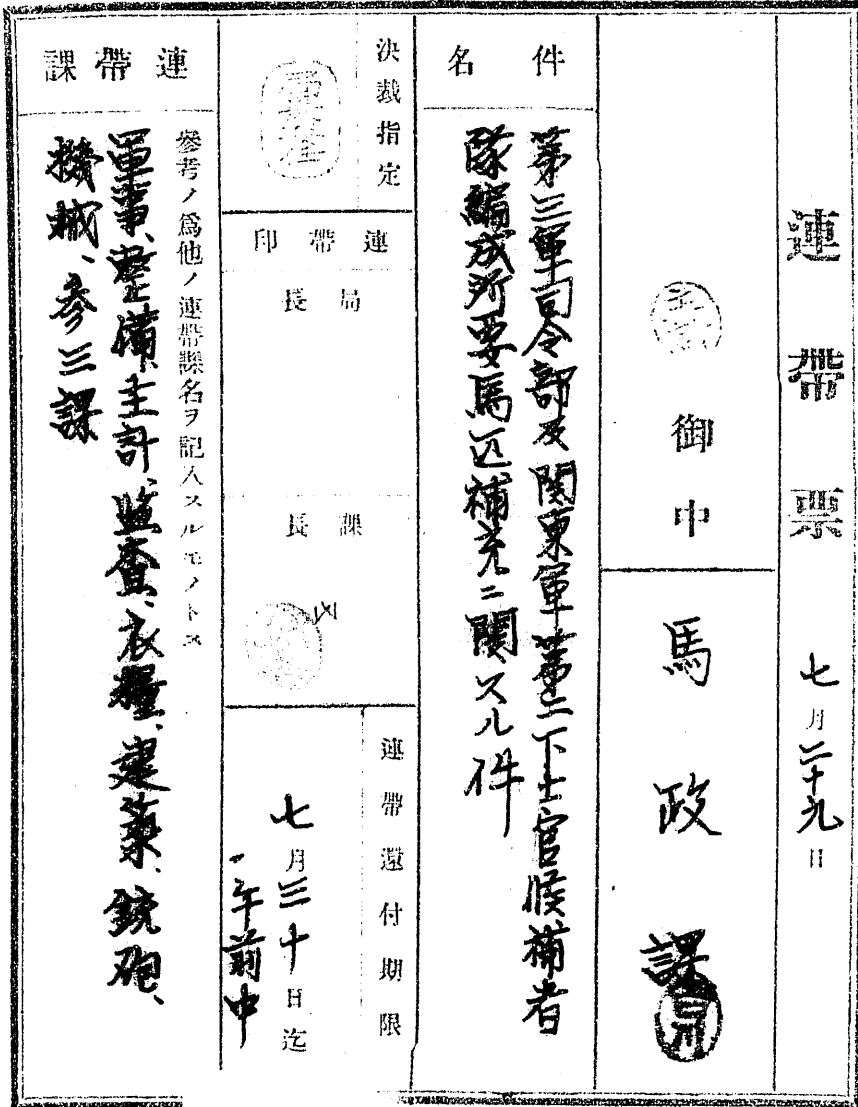 連帶票
七月二十九日
御中
馬政課
件名
第三軍司令部及関東軍第二下士官候補者
隊編成所要馬匹補充ニ関スル件
決裁指定
連帶印
局長
課長
連帶還付期限
七月三十日迄
午前中
連帶課
參考ノ爲他ノ連帶課名ヲ記入スルモノトス
軍事、整備、主計、監査、衣糧、建築、銃砲、
機械、参三課